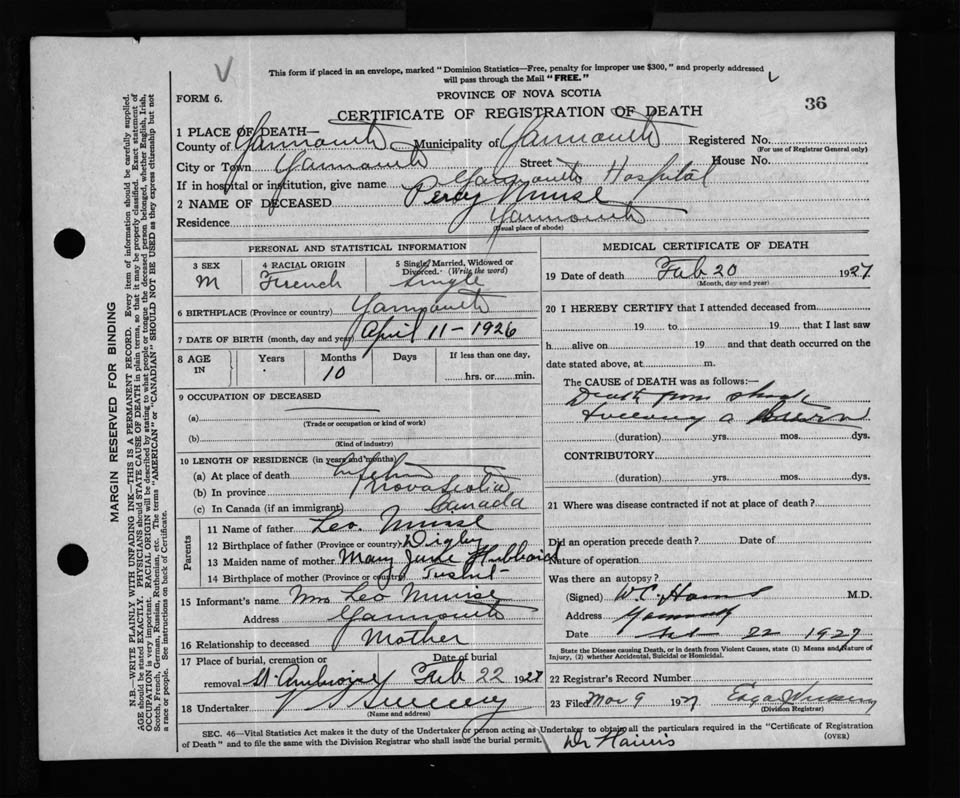 This form if placed in an envelope, marked "Dominion Statistics—Free, penalty for improper use $300," and properly addressed
will pass through the Mail "FREE."
FORM 6.
PROVINCE OF NOVA SCOTIA
36
CERTIFICATE OF REGISTRATION OF DEATH
1 PLACE OF DEATH—
County of Yarmouth Municipality of Yarmouth Registered No.
(For use of Registrar General only)
City or Town Yarmouth Street House No.
If in hospital or institution, give name Yarmouth Hospital
2 NAME OF DECEASED Percy Muise
Residence Yarmouth
(Usual place of abode)
PERSONAL AND STATISTICAL INFORMATION
3 SEX 4 RACIAL ORIGIN 5 Single, Married, Widowed or Divorced. (Write the word)
M French Single
6 BIRTHPLACE (Province or country) Yarmouth
7 DATE OF BIRTH (month, day and year) April 11 - 1926
8 AGE IN Years Months Days If less than one day,
10 hrs. or min.
9 OCCUPATION OF DECEASED
(a)
(Trade or occupation or kind of work)
(b)
(Kind of industry)
10 LENGTH OF RESIDENCE (in years and months)
(a) At place of death Lifetime
(b) In province Nova Scotia
(c) In Canada (if an immigrant) Canada
Parents
11 Name of father Leo. Muise
12 Birthplace of father (Province or country) Digby
13 Maiden name of mother Mary Jane Hubbard
14 Birthplace of mother (Province or country) Tusket
15 Informant's name Mrs Leo Muise
Address Yarmouth
16 Relationship to deceased Mother
17 Place of burial, cremation or Date of burial
removal St Ambrose Feb 22 1927
18 Undertaker V S Sweeny
(Name and address)
MEDICAL CERTIFICATE OF DEATH
19 Date of death Feb 20 1927
(Month, day and year)
20 I HEREBY CERTIFY that I attended deceased from
19 to 19 that I last saw
h alive on 19 and that death occurred on the
date stated above, at m.
The CAUSE of DEATH was as follows:—
Death from shock
following a burn
(duration) yrs. mos. dys.
CONTRIBUTORY
(duration) yrs. mos. dys.
21 Where was disease contracted if not at place of death?
Did an operation precede death? Date of
Nature of operation
Was there an autopsy?
(Signed) W.C. Harris M.D.
Address Yarmouth
Date Feb 22 1927
State the Disease causing Death, or in death from Violent Causes, state (1) Means and Nature of
Injury, (2) whether Accidental, Suicidal or Homicidal.
22 Registrar's Record Number
23 Filed Mar 9 1927
(Division Registrar)
SEC. 46—Vital Statistics Act makes it the duty of the Undertaker or person acting as Undertaker to obtain all the particulars required in the "Certificate of Registration
of Death" and to file the same with the Division Registrar who shall issue the burial permit.
(OVER)
Dr Harris
MARGIN RESERVED FOR BINDING
N.B.—WRITE PLAINLY WITH UNFADING INK—THIS IS A PERMANENT RECORD. Every item of information should be carefully supplied.
AGE should be stated EXACTLY. PHYSICIANS should STATE CAUSE OF DEATH in plain terms, so that it may be properly classified. Exact statement of
OCCUPATION is very important. RACIAL ORIGIN will be described by stating to what people or tongue the deceased person belonged, whether English, Irish,
Scotch, French, German, Russian, Ruthenian, etc. The terms "AMERICAN" or "CANADIAN" SHOULD NOT BE USED as they express citizenship but not
a race or people. See instructions on back of Certificate.